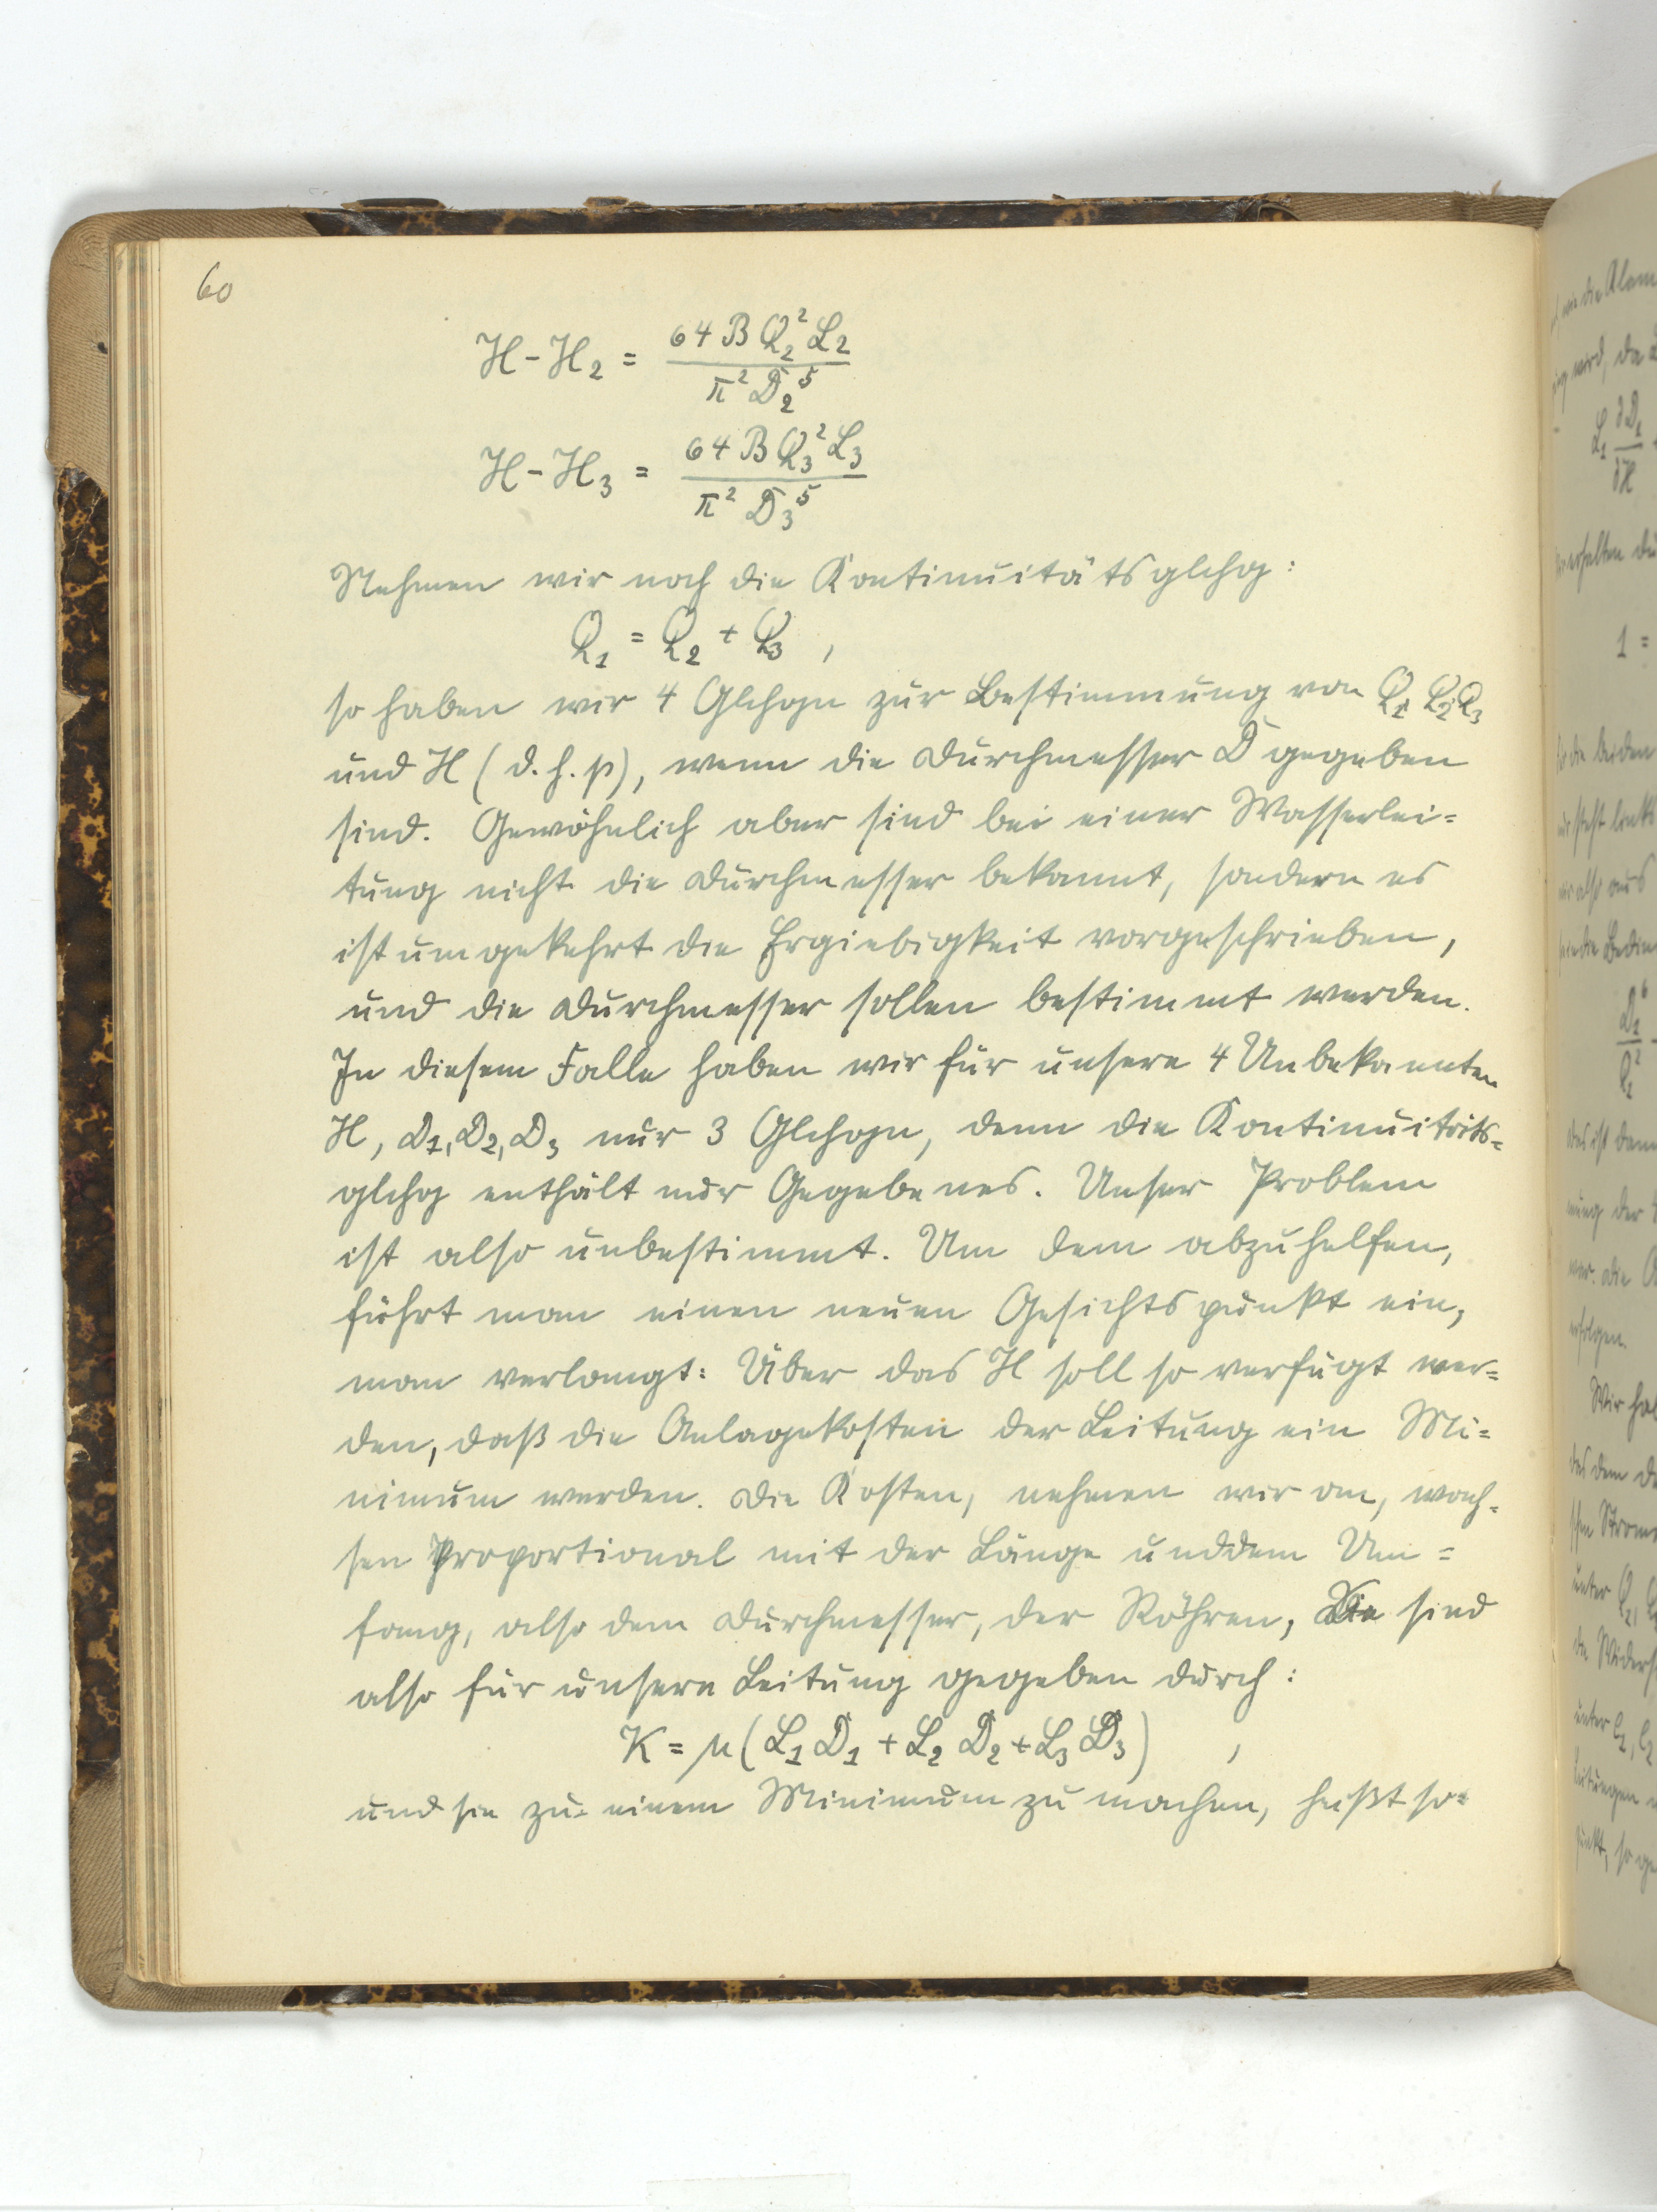 60
H - H₂ = 64 B Q₂² L₂ / π² D₂⁵
H - H₃ = 64 B Q₃² L₃ / π² D₃⁵
Nehmen wir noch die Kontinuitätsglchg:
Q₁ = Q₂ + Q₃ ,
so haben wir 4 Glchgn zur Bestimmung von Q₁ Q₂ Q₃
und H (d. h. p), wenn die Durchmesser D gegeben
sind. Gewöhnlich aber sind bei einer Wasserlei=
tung nicht die Durchmesser bekannt, sondern es
ist umgekehrt die Ergiebigkeit vorgeschrieben,
und die Durchmesser sollen bestimmt werden.
In diesem Falle haben wir für unsere 4 Unbekannten
H, D₁, D₂, D₃ nur 3 Glchgn, denn die Kontinuitäts=
glchg enthält nur Gegebenes. Unser Problem
ist also unbestimmt. Um dem abzuhelfen,
führt man einen neuen Gesichtspunkt ein,
man verlangt: Über das H soll so verfügt wer=
den, daß die Anlagekosten der Leitung ein Mi=
nimum werden. Die Kosten, nehmen wir an, wach=
sen proportional mit der Länge und dem Um=
fang, also dem Durchmesser, der Röhren, Sie sind
also für unsere Leitung gegeben durch:
K = μ (L₁ D₁ + L₂ D₂ + L₃ D₃) ,
und sie zu einem Minimum zu machen, heißt so=